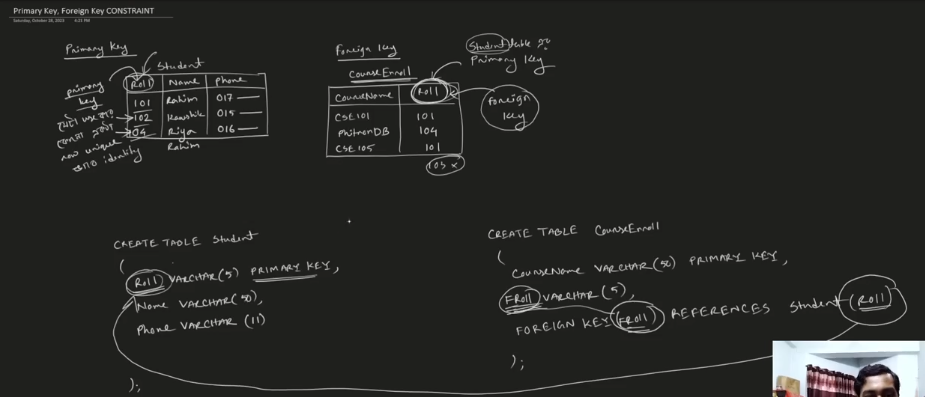 Primary Key, Foreign Key CONSTRAINT
Saturday, October 28, 2023 4:21 PM
Primary Key
Student
primary key
Roll Name Phone
101 Rahim 017
102 Koushik 015
104 Riya 016
Rahim
row unique
identity
Foreign Key
CourseEnroll
Student table এর
Primary Key
CourseName Roll
CSE101 101
PhitronDB 104
CSE105 101
103 x
Foreign Key
CREATE TABLE Student
(
Roll VARCHAR(5) PRIMARY KEY,
Name VARCHAR(50),
Phone VARCHAR (11)
);
CREATE TABLE CourseEnroll
(
CourseName VARCHAR(50) PRIMARY KEY,
FRoll VARCHAR(5),
FOREIGN KEY (FRoll) REFERENCES Student (Roll)
);